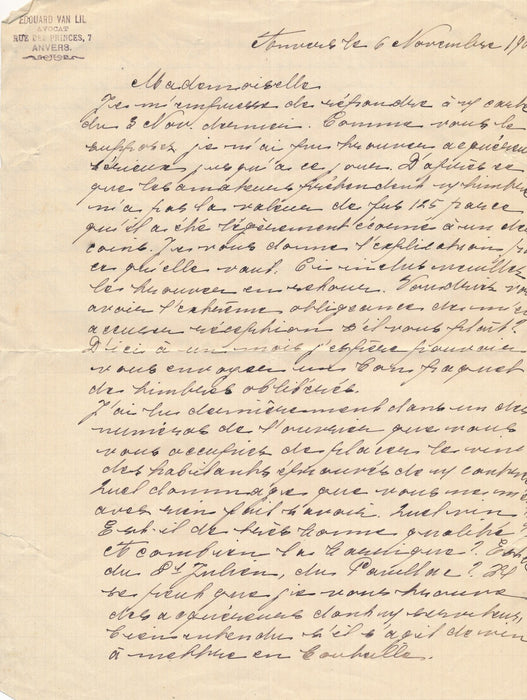 EDOUARD VAN LIL
AVOCAT
RUE DES PRINCES, 7
ANVERS.
Anvers le 6 Novembre 190
Mademoiselle
Je m'empresse de répondre à v/ carte
du 3 Nov. dernier. Comme vous le
supposez je n'ai pu trouver acquéreur
sérieux jusqu'à ce jour. D'après ce
que les amateurs prétendent v/ timbre
n'a pas la valeur de frs 125 parce
qu'il a été légèrement écorné à un des
coins. Je vous donne l'explication p
ce qu'elle vaut. Ci inclus veuillez
le trouver en retour. Voudriez v
avoir l'extrême obligeance de m'en
accuser réception s'il vous plait?
D'ici à un mois j'espère pouvoir
vous envoyer un bon paquet
de timbres oblitérés.
J'ai lu dernièrement dans un des
numéros de l'ouvrier que vous
vous occupiez de placer le vin
des habitants éprouvés de v/ contrée
Quel dommage que vous ne m
avez rien fait savoir. Quel vin
Est-il de très bonne qualité
Et combien la barrique? Est
du St Julien, du Pauillac? Il
se peut que je vous trouve
des acquéreurs dont
bien entendu s'il s'agit de vin
à mettre en bouteille.